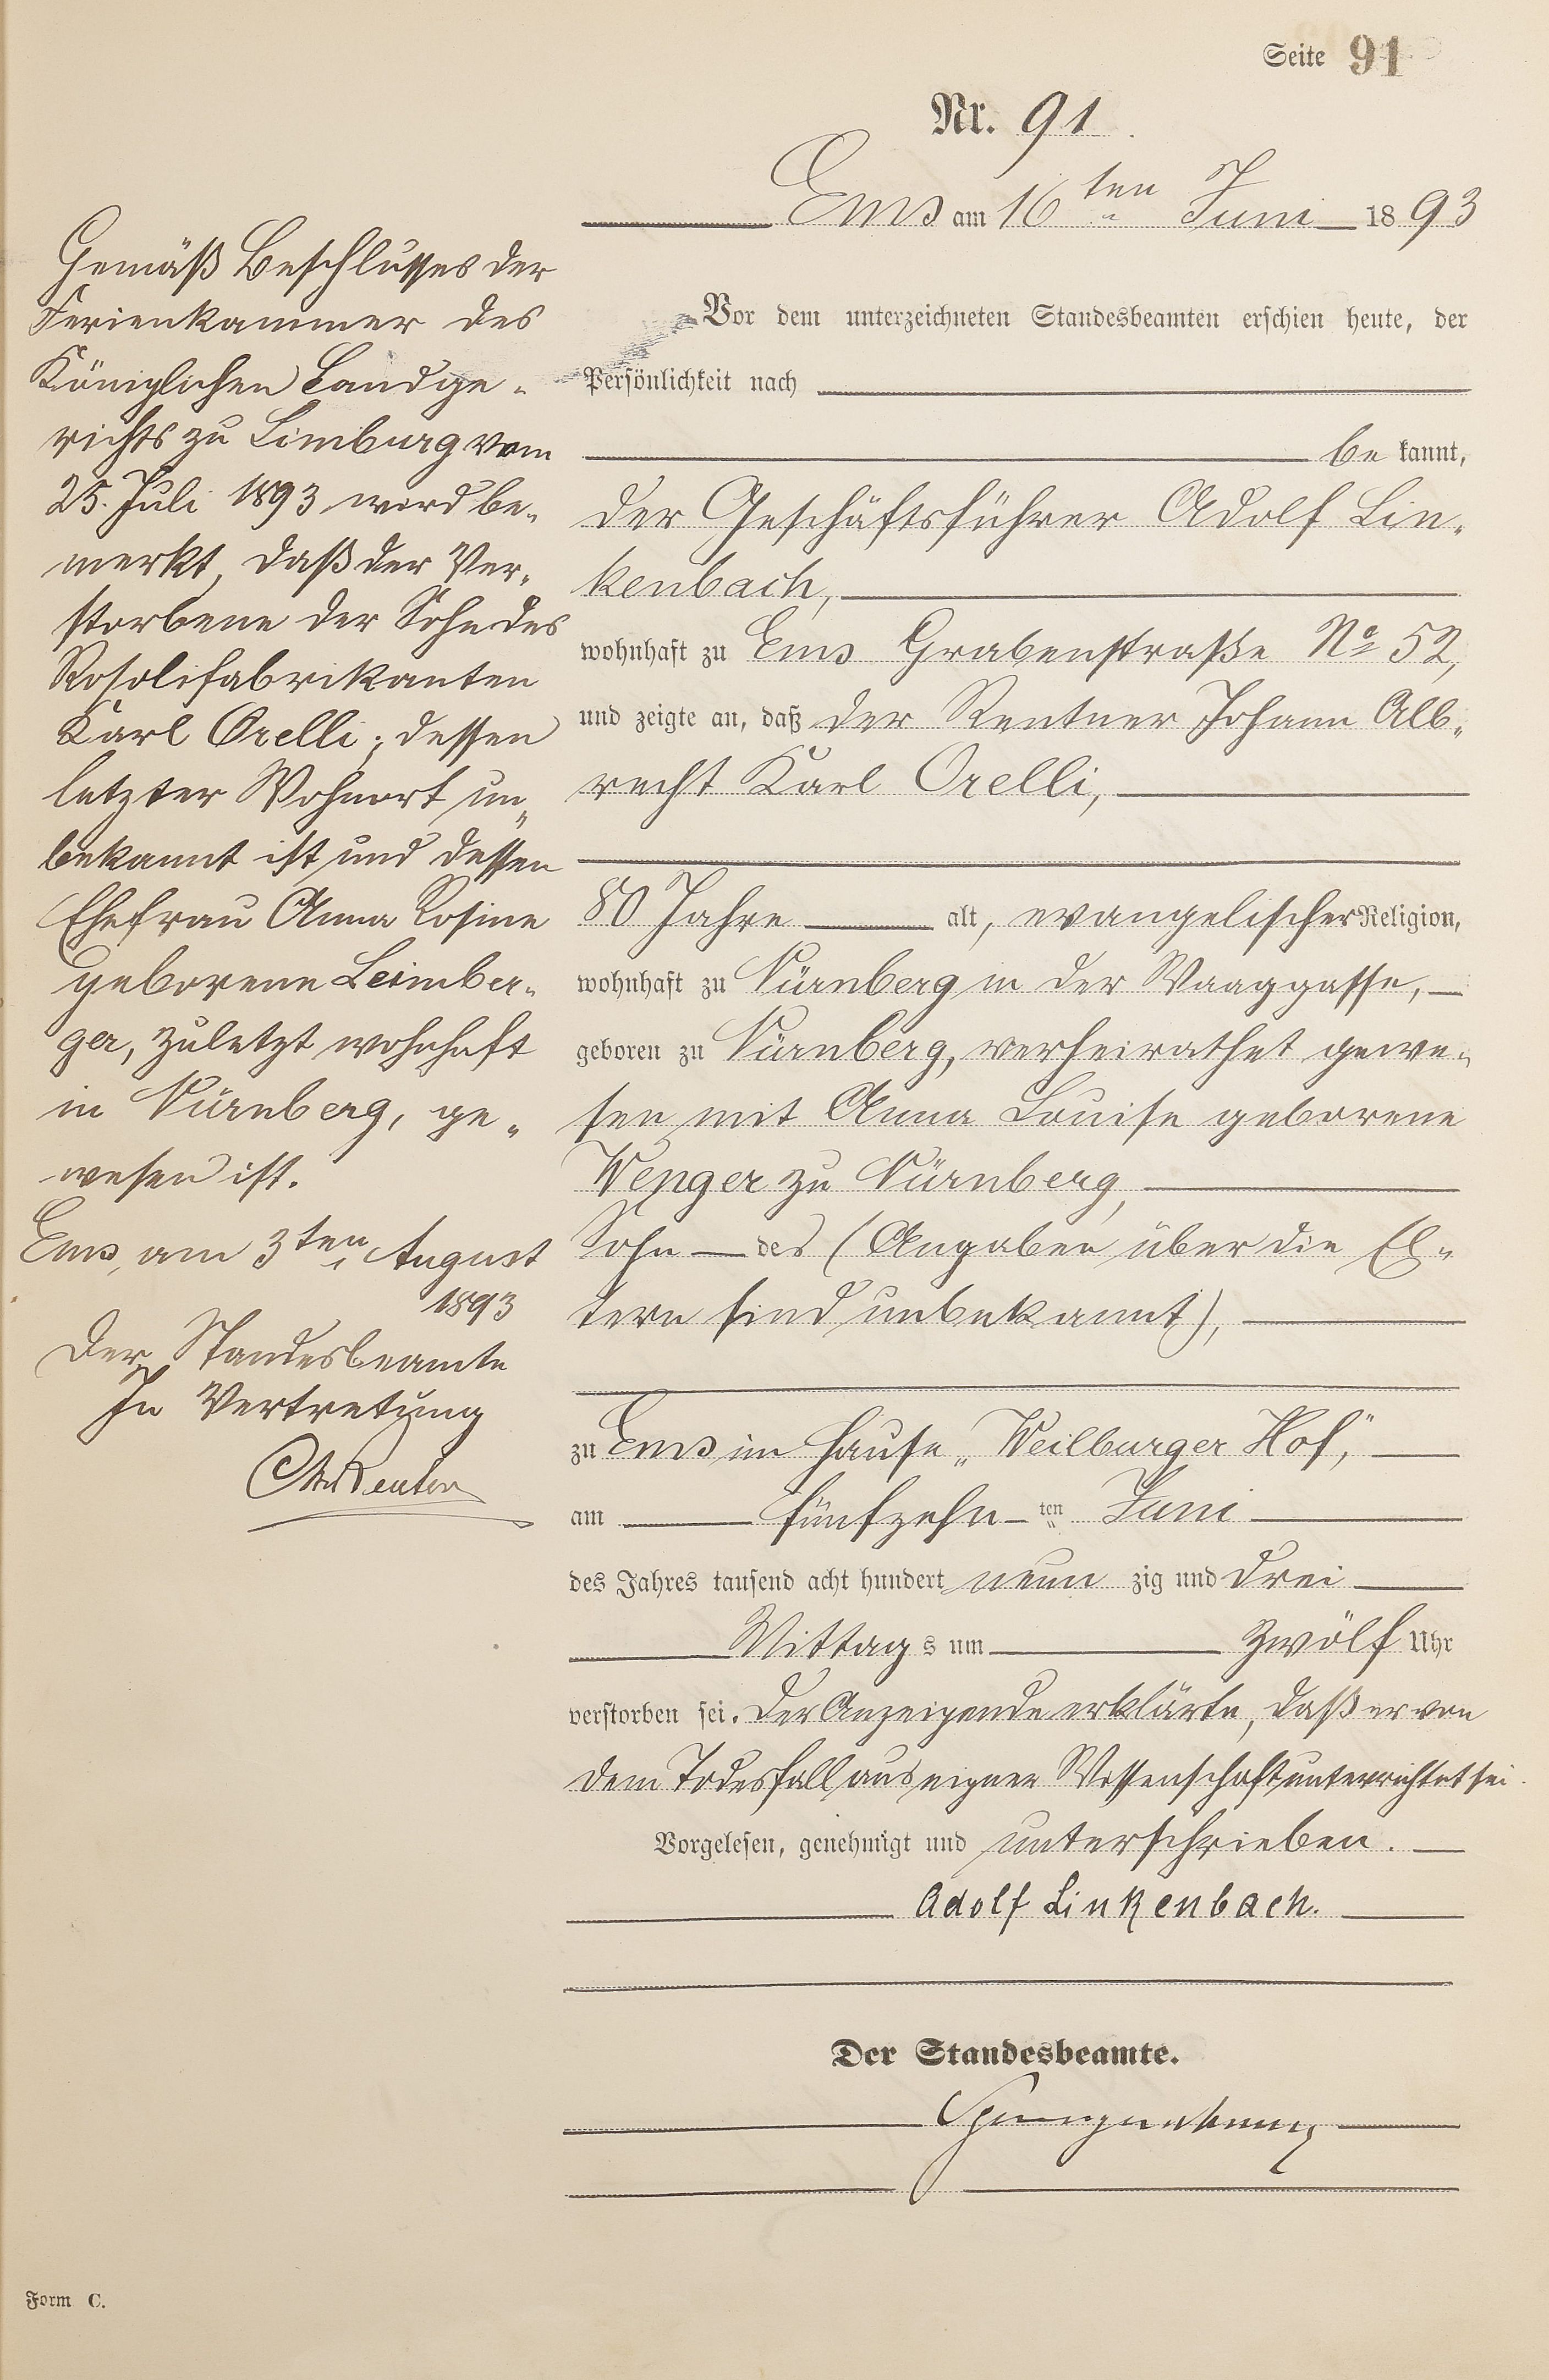 Seite 91
Nr. 91.
Ems am 16ten Juni 1893
Vor dem unterzeichneten Standesbeamten erschien heute, der
Persönlichkeit nach
be kannt,
der Geschäftsführer Adolf Lin-
kenbach,
wohnhaft zu Ems Grabenstraße No 52,
und zeigte an, daß der Rentner Johann Alb-
recht Karl Orelli,
80 Jahre alt, evangelischer Religion,
wohnhaft zu Nürnberg in der Waaggasse,
geboren zu Nürnberg, verheirathet gewe-
sen mit Anna Louise geborene
Wenger zu Nürnberg,
Sohn des (Angaben über die El-
tern sind unbekannt),
zu Ems im Hause „Weilburger Hof,"
am fünfzehn ten Juni
des Jahres tausend acht hundert neun zig und drei
Mittag s um zwölf Uhr
verstorben sei. Der Anzeigende erklärte, daß er von
dem Todesfall aus eigner Wissenschaft unterrichtet sei.
Vorgelesen, genehmigt und unterschrieben.
Adolf Linkenbach.
Der Standesbeamte.
Gemäß Beschlusses der
Ferienkammer des
Königlichen Landge-
richts zu Limburg vom
25. Juli 1893 wird be-
merkt, daß der Ver-
storbene der Sohn des
Rosolifabrikanten
Karl Orelli; dessen
letzter Wohnort un-
bekannt ist und dessen
Ehefrau Anna Rosine
geborene Leimber-
ger, zuletzt wohnhaft
in Nürnberg, ge-
wesen ist.
Ems, am 3ten August
1893
Der Standesbeamte
In Vertretung
Form C.